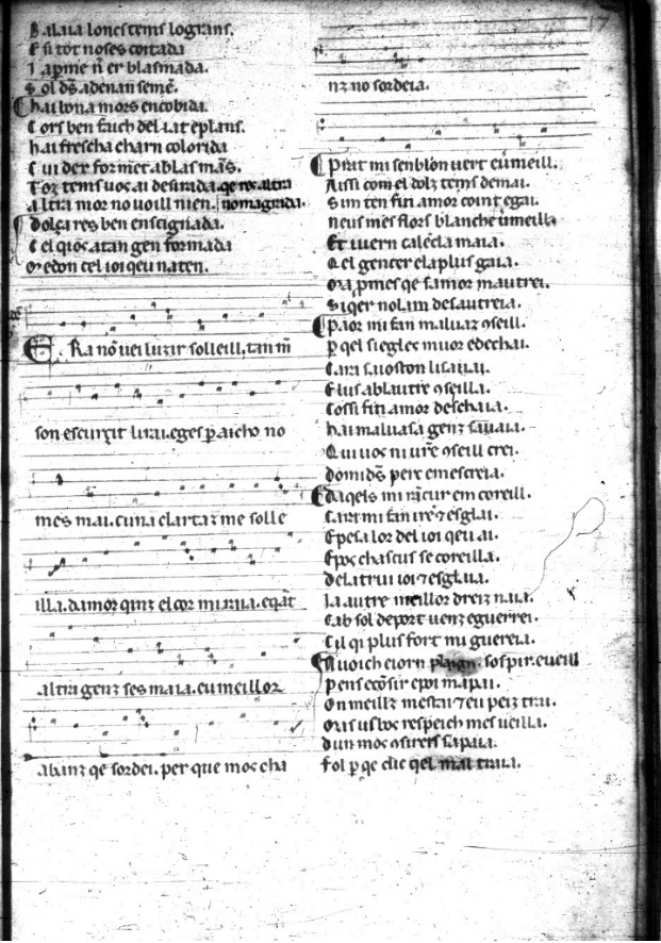 17
Balaia lonc tems lograns.
E si tot noses coitada
Ia p me ñ er blasmada.
Sol dš adenan seme.
Chai bona mors encobida.
Cors ben faich delıat e plans.
hai frescha charn colorida
Cui dex formet ab las mãs.
Toz tems uos ai desirada. qe res altra
altra mor no uoill nien. no magrada.
Dolça res ben enseignada.
Cel qi os a tan gen formada
Me don cel ioi qeu naten.
ERa nõ uei luzir solleill. tan m̃
son escurzit li rai. e ges p aicho no
mes mai. cuna clartaz me solle
illa. damor qinz el cor mi raia. e qãt
altra genz ses maia. eu meillor
abanz qe sordei. per que mos cha
nz no sordeia.
Prat mi senblon uert e ũmeill.
Aissi com el dolz tems de mai.
Sim ten fin amor coint e gai.
neus mes flors blanche ũmeilla
Et iuern calẽda maia.
Qel gencer e la plus gaia.
Ora pmes qe samor mautrei.
Siqer no lam desautreia.
Paor mi fan maluaz ꝯseill.
p qel siegles muor e dechai.
Cara sauoston li sauai.
E lus ab lautre ꝯseilla.
Cossi fin amor deschaia.
hai maluasa genz sauaia.
Qui uos ni ur̃e ꝯseill crei.
domidš perc e mescreia.
Daqels mi rãcur em coreill.
Cara mi fan ire ⁊ esglai.
E pesa lor del ioi qeu ai.
E pos chascus se coreilla.
De latrui ioi ⁊ esglaia.
Ia autre meillor dreiz naia.
Cab sol deport uenz e guerrei.
Cil qi plus fort mi guereia.
Nuoich e iorn plaign. sospir. e ueill
Pens e cõsir e poi mapai.
On meillz mestai ⁊ eu peiz trai.
Mas us bos respeich mesueilla.
Dun mos ꝯsirers sapaia.
Fol p qe dic qel mal traia.